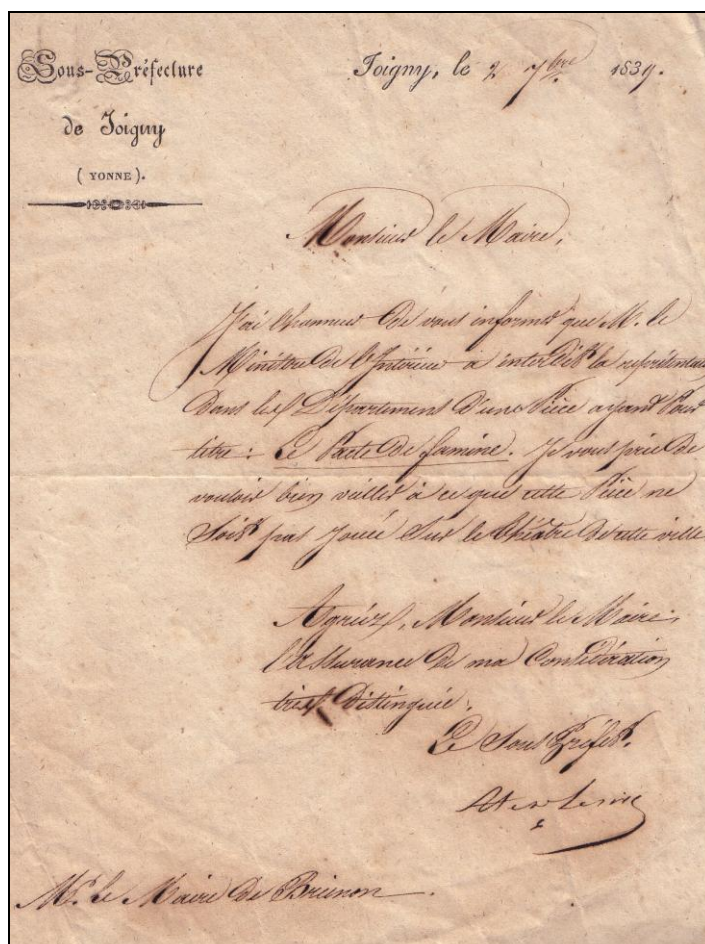 Sous-Préfecture
de Joigny
(YONNE).
Joigny, le 2 7bre 1839.
Monsieur le Maire,
J'ai l'honneur de vous informer que M. le
Ministre de l'Intérieur a interdit la représentat
dans les Départements d'une Pièce ayant Pour
titre : Le Pacte de famine. Je vous prie de
vouloir bien veiller à ce que cette Pièce ne
Soit pas Jouée Sur le théâtre de cette ville
Agréez, Monsieur le Maire,
l'assurance de ma Considération
très Distinguée.
Le Sous Préfet.
Mr. Le Maire de Brienon.